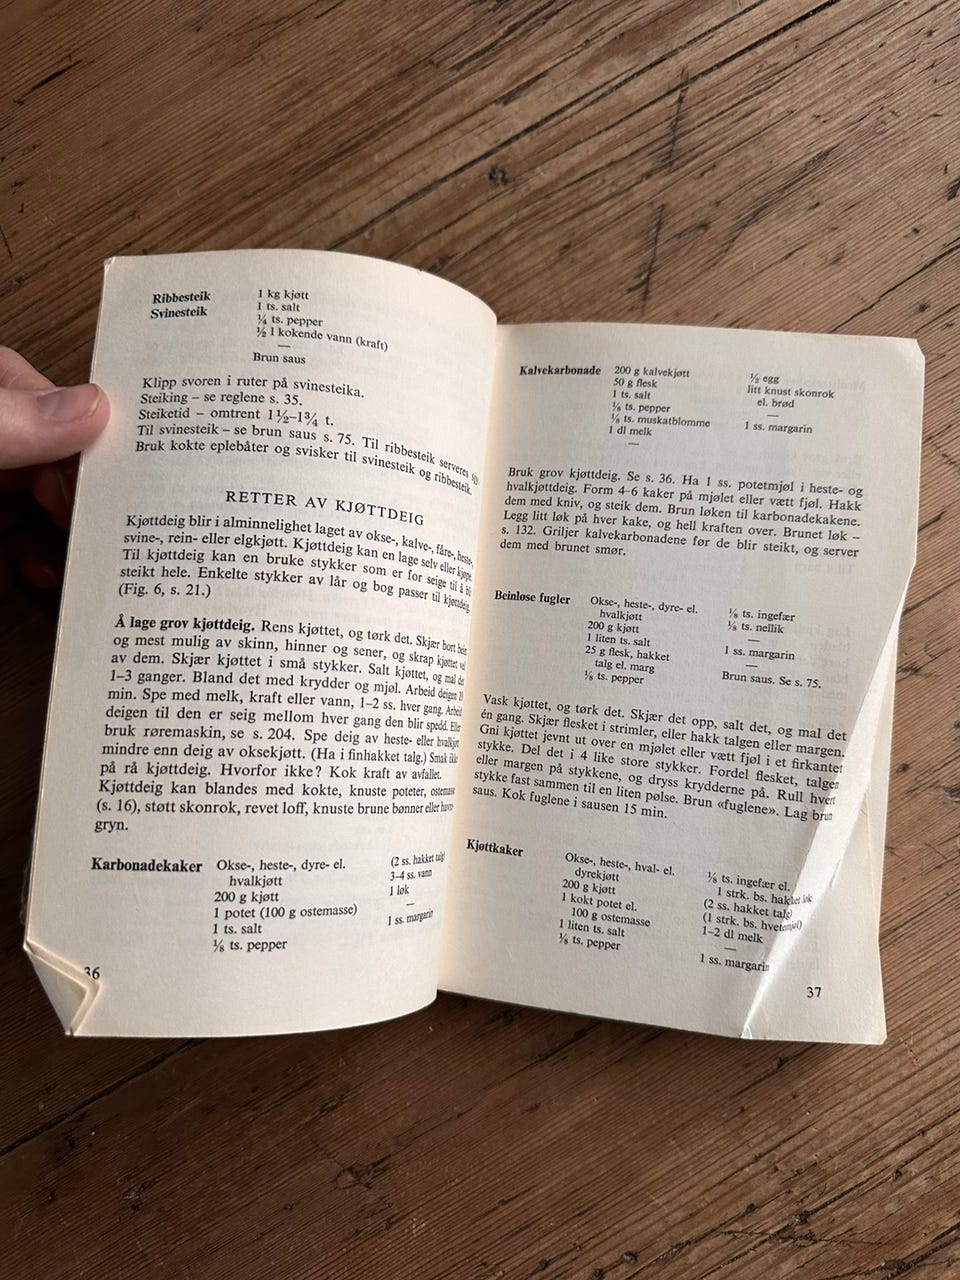 Ribbesteik
Svinesteik
1 kg kjøtt
1 ts. salt
¼ ts. pepper
½ l kokende vann (kraft)
—
Brun saus
Klipp svoren i ruter på svinesteika.
Steiking – se reglene s. 35.
Steiketid – omtrent 1½–1¾ t.
Til svinesteik – se brun saus s. 75. Til ribbesteik serveres sjy.
Bruk kokte eplebåter og svisker til svinesteik og ribbesteik.
RETTER AV KJØTTDEIG
Kjøttdeig blir i alminnelighet laget av okse-, kalve-, fåre-, heste-,
svine-, rein- eller elgkjøtt. Kjøttdeig kan en lage selv eller kjøpe.
Til kjøttdeig kan en bruke stykker som er for seige til å bli
steikt hele. Enkelte stykker av lår og bog passer til kjøttdeig.
(Fig. 6, s. 21.)
Å lage grov kjøttdeig. Rens kjøttet, og tørk det. Skjær bort bein
og mest mulig av skinn, hinner og sener, og skrap kjøttet vel
av dem. Skjær kjøttet i små stykker. Salt kjøttet, og mal det
1–3 ganger. Bland det med krydder og mjøl. Arbeid deigen 10
min. Spe med melk, kraft eller vann, 1–2 ss. hver gang. Arbeid
deigen til den er seig mellom hver gang den blir spedd. Eller
bruk røremaskin, se s. 204. Spe deig av heste- eller hvalkjøtt
mindre enn deig av oksekjøtt. (Ha i finhakket talg.) Smak ikke
på rå kjøttdeig. Hvorfor ikke? Kok kraft av avfallet.
Kjøttdeig kan blandes med kokte, knuste poteter, ostemasse
(s. 16), støtt skonrok, revet loff, knuste brune bønner eller havre-
gryn.
Karbonadekaker
Okse-, heste-, dyre- el.
hvalkjøtt
200 g kjøtt
1 potet (100 g ostemasse)
1 ts. salt
⅛ ts. pepper
(2 ss. hakket talg)
3–4 ss. vann
1 løk
—
1 ss. margarin
36
Kalvekarbonade
200 g kalvekjøtt
50 g flesk
1 ts. salt
⅛ ts. pepper
⅛ ts. muskatblomme
1 dl melk
—
½ egg
litt knust skonrok
el. brød
—
1 ss. margarin
Bruk grov kjøttdeig. Se s. 36. Ha 1 ss. potetmjøl i heste- og
hvalkjøttdeig. Form 4–6 kaker på mjølet eller vætt fjøl. Hakk
dem med kniv, og steik dem. Brun løken til karbonadekakene.
Legg litt løk på hver kake, og hell kraften over. Brunet løk –
s. 132. Griljer kalvekarbonadene før de blir steikt, og server
dem med brunet smør.
Beinløse fugler
Okse-, heste-, dyre- el.
hvalkjøtt
200 g kjøtt
1 liten ts. salt
25 g flesk, hakket
talg el. marg
⅛ ts. pepper
⅛ ts. ingefær
⅛ ts. nellik
—
1 ss. margarin
—
Brun saus. Se s. 75.
Vask kjøttet, og tørk det. Skjær det opp, salt det, og mal det
én gang. Skjær flesket i strimler, eller hakk talgen eller margen.
Gni kjøttet jevnt ut over en mjølet eller vætt fjøl i et firkantet
stykke. Del det i 4 like store stykker. Fordel flesket, talgen
eller margen på stykkene, og dryss krydderne på. Rull hvert
stykke fast sammen til en liten pølse. Brun «fuglene». Lag brun
saus. Kok fuglene i sausen 15 min.
Kjøttkaker
Okse-, heste-, hval- el.
dyrekjøtt
200 g kjøtt
1 kokt potet el.
100 g ostemasse
1 liten ts. salt
⅛ ts. pepper
⅛ ts. ingefær el.
1 strk. bs. hakket løk
(2 ss. hakket talg)
(1 strk. bs. hvetemjøl)
1–2 dl melk
—
1 ss. margarin
37